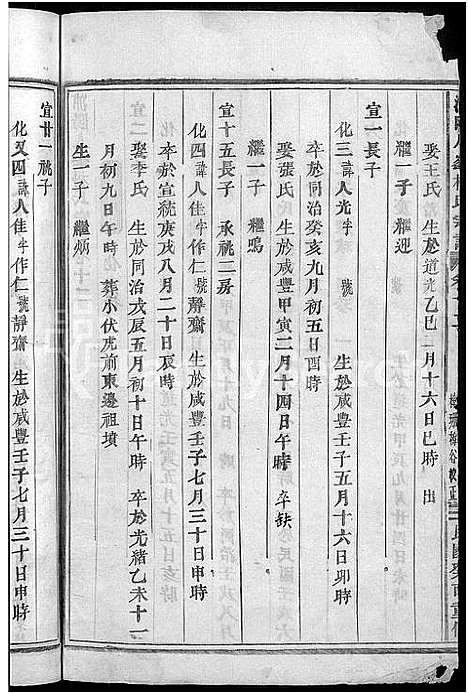 娶王氏 生於道光乙巳 月十六日巳時 出
繼一子 繼迎
宣一長子
化三 諱人光 字 號 生於咸豐壬子五月十六日卯時
卒於同治癸亥九月初五日酉時
娶張氏 生於咸豐甲寅二月十四日午時 卒缺
繼一子 繼鳴
宣十五長子 承祧二房
化四 諱人佳 字作仁 號靜齋 生於咸豐壬子七月三十日申時
卒於宣統庚戌八月二十日辰時
宣二 娶李氏 生於同治戊辰五月初十日午時 卒於光緒乙未十一
月初九日午時 葬小伏虎前東邊祖墳
生一子 繼炳
宣廿一祧子
化又四 諱人佳 字作仁 號靜齋 生於咸豐壬子七月三十日申時